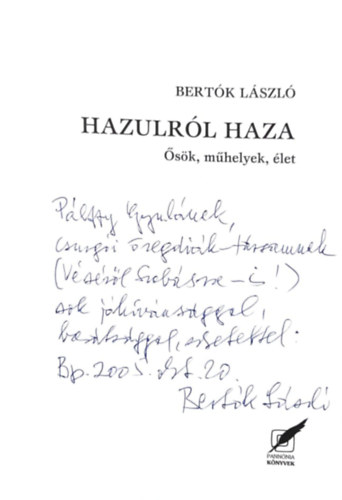 BERTÓK LÁSZLÓ
HAZULRÓL HAZA
Ősök, műhelyek, élet
Pálffy Gyulának,
csurgói öregdiák-társamnak
(Véséről Szobásra – is!)
sok jókívánsággal,
barátsággal, szeretettel:
Bp. 2005. okt. 20.
Bertók László
PANNÓNIA
KÖNYVEK